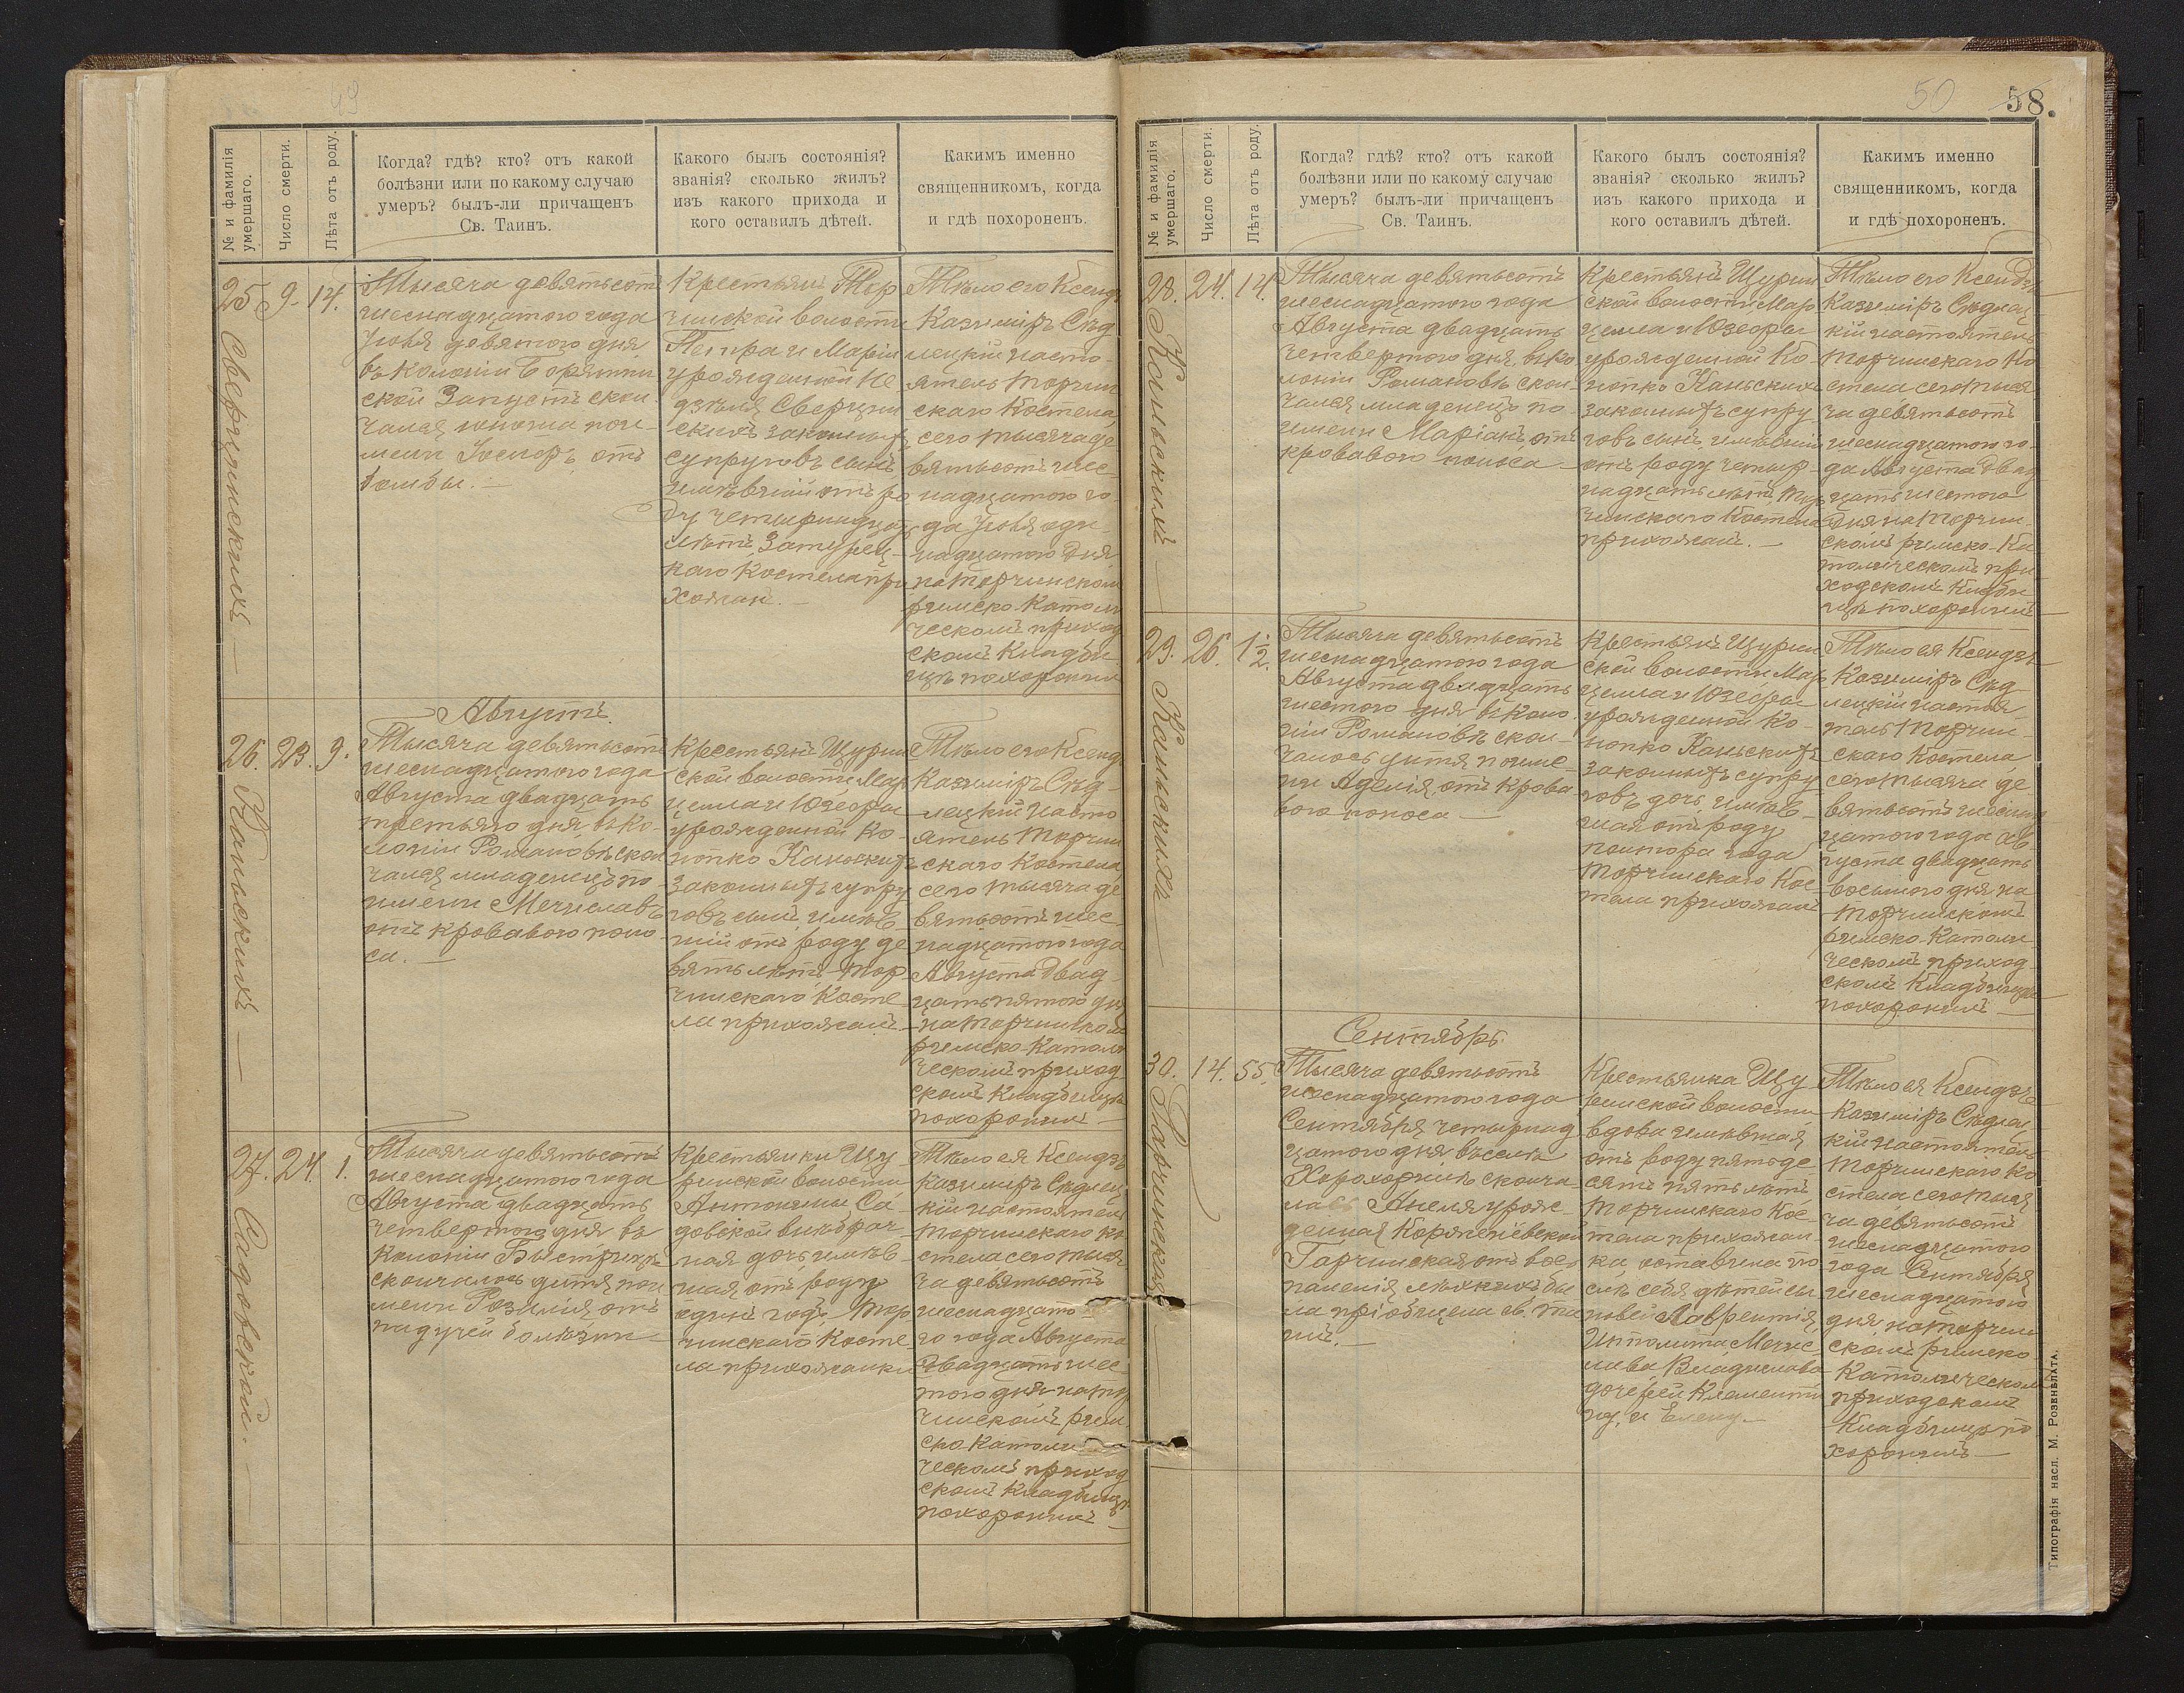 49
№ и фамилія умершаго.
Число смерти.
Лѣта отъ роду.
Когда? гдѣ? кто? отъ какой
болѣзни или по какому случаю
умеръ? былъ-ли причащенъ
Св. Таинъ.
Какого былъ состоянія?
званія? сколько жилъ?
изъ какого прихода и
кого оставилъ дѣтей.
Какимъ именно
священникомъ, когда
и гдѣ похороненъ.
25
Сверщинскихъ
9.
14.
Тысяча девятьсотъ
шеснадцатого года
Іюля девятого дня
въ колоніи Борятин
ской Запустъ скон
чался юноша по и-
мени Іосифъ отъ
бомбы.
Крестьянъ Тор
чинской волости
Петра и Маріи
урожденной Не
дзѣля Сверщин
скихъ законныхъ
супруговъ сынъ
имѣвшій отъ ро
ду четырнадцать
лѣтъ, Затурец-
каго Костела при
хожан.
Тѣло его Ксендзъ
Казиміръ Сѣд
лецкій насто-
ятель Торчин
скаго Костела
сего тысяча де
вятьсотъ шес
надцатого го-
да Іюля оди-
надцатого дня
на Торчинском
римско-Католи
ческомъ приход
скомъ Кладби
щѣ похоронил
Августъ.
26.
Каньскихъ
23.
9.
Тысяча девятьсотъ
шеснадцатого года
Августа двадцать
третьяго дня въ Ко-
лоніи Романовъ скон
чался младенецъ по
имени Мечиславъ
отъ кроваваго поно
са.
Крестьянъ Щурин
ской волости Мар
целла и Юзефы
урожденной Ко-
нопко Каньскихъ
законныхъ супру
говъ сынъ имѣв-
шій отъ роду де
вять лѣтъ, Тор
чинскаго Косте
ла прихожанъ
Тѣло его Ксендзъ
Казиміръ Сѣд-
лецкій насто
ятель Торчин
скаго Костела
сего тысяча де
вятьсотъ шес
надцатого года
Августа двад-
цать пятого дня
на Торчинском
римско-Католи
ческомъ приход
скомъ Кладбищѣ
похоронилъ
27.
Садовской.
24.
1.
Тысяча девятьсотъ
шеснадцатого года
Августа двадцать
четвертого дня въ
Колоніи Быстрица
скончалось дитя по и
мени Розалія отъ
падучей болѣзни
Крестьянки Щу
ринской волости
Антонины Са-
довской внѣбрач-
ная дочь имѣв-
шая отъ роду
одинъ годъ, Тор
чинскаго Косте
ла прихожанки
Тѣло ея Ксендзъ
Казиміръ Сѣдлец
кій настоятель
Торчинскаго Ко
стела сего тыся
ча девятьсотъ
шеснадцато
го года Августа
двадцать шес
того дня на Тор
чинскомъ рим
ско-Католи
ческомъ приход
скомъ Кладбищѣ
похоронилъ
50
58.
№ и фамилія умершаго.
Число смерти.
Лѣта отъ роду.
Когда? гдѣ? кто? отъ какой
болѣзни или по какому случаю
умеръ? былъ-ли причащенъ
Св. Таинъ.
Какого былъ состоянія?
званія? сколько жилъ?
изъ какого прихода и
кого оставилъ дѣтей.
Какимъ именно
священникомъ, когда
и гдѣ похороненъ.
28.
Каньскихъ
24.
14.
Тысяча девятьсотъ
шеснадцатого года
Августа двадцать
четвертого дня, въ Ко
лоніи Романовъ скон-
чался младенецъ по
имени Маріанъ, отъ
кроваваго поноса
Крестьянъ Щурин
ской волости Мар
целла и Юзефы
урожденной Ко-
нопко Каньскихъ
законныхъ супру
говъ сынъ имѣвшій
отъ роду четыр-
надцать лѣтъ, Тор
чинскаго Костела
прихожанъ.
Тѣло его Ксендзъ
Казиміръ Сѣдлец
кій настоятель
Торчинскаго Ко
стела сего тыся
ча девятьсотъ
шеснадцатого го-
да Августа двад
цать шестого
дня на Торчин
скомъ римско-Ка
толическомъ при
ходскомъ Кладби
щѣ похоронилъ
29.
Каньскихъ
26.
1 1/2.
Тысяча девятьсотъ
шеснадцатого года
Августа двадцать
шестого дня въ Коло
ніи Романовъ скон-
чалось дитя по име-
ни Аделія, отъ крова
ваго поноса
Крестьянъ Щурин
ской волости Мар
целла и Юзефы
урожденной Ко-
нопко Каньскихъ
законныхъ супру
говъ дочь имѣв-
шая отъ роду
полтора года
Торчинскаго Кос
тела прихожанъ
Тѣло ея Ксендзъ
Казиміръ Сѣд
лецкій настоя-
тель Торчин-
скаго Костела
сего тысяча де
вятьсотъ шеснад
цатого года Ав-
густа двадцать
восьмого дня на
Торчинскомъ
римско-Католи
ческомъ приход
скомъ Кладбищѣ
похоронилъ
Сентябрь
30.
Горчинская
14.
55.
Тысяча девятьсотъ
шеснадцатого года
Сентября четырнад
цатого дня въ селѣ
Хорохоринъ сконча
лась Анеля урож-
денная Корженёвская
Горчинская отъ вос
паленія лёхкихъ бы
ла пріобщена св. та
инъ.
Крестьянка Щу
ринской волости
вдова имѣвшая
отъ роду пятьде
сятъ пять лѣтъ
Торчинскаго Кос-
тела прихожан-
ка, оставила по
слѣ себя дѣтей сы
новей Лаврентія
Ипполита, Мечис
лава, Владислава
дочерей Клементи
ну, и Елену.
Тѣло ея Ксендзъ
Казиміръ Сѣдлец
кій настоятель
Торчинскаго Ко
стела сего тыся
ча девятьсотъ
шеснадцатого
года Сентября
шеснадцатого
дня на Торчин
скомъ римско-
Католическом
приходскомъ
Кладбищѣ по
хоронилъ
Типографія насл. М. Розенблата.